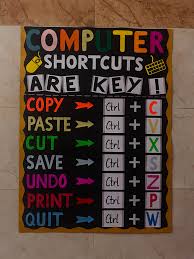 COMPUTER
SHORTCUTS
ARE KEY!
COPY Ctrl + C
PASTE Ctrl + V
CUT Ctrl + X
SAVE Ctrl + S
UNDO Ctrl + Z
PRINT Ctrl + P
QUIT Ctrl + W